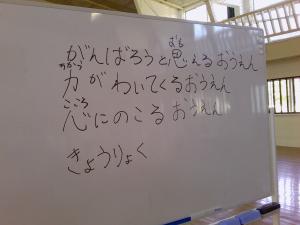 がんばろうと思えるおうえん
おも
力がわいてくるおうえん
ちから
心にのこるおうえん
こころ
きょうりょく